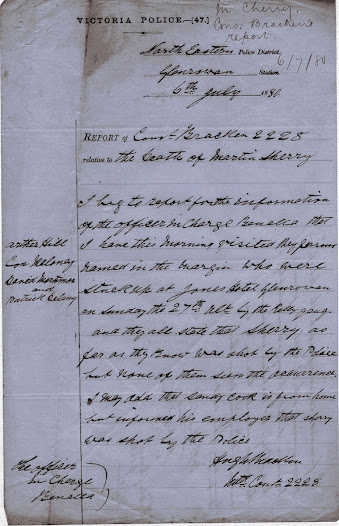 M Cherry.
Cons. Bracken's
report.
6/7/80
VICTORIA POLICE.—[47.]
North Eastern Police District,
Glenrowan Station.
6th July 1880.
REPORT of Const Bracken 2228
relative to the Death of Martin Sherry
I beg to report for the information
of the officer in Charge Benalla that
I have this Morning visited the persons
named in the margin who were
stuck up at Jones Hotel Glenrowan
on Sunday the 27th ult. by the Kelly gang.
and they all state that Sherry as
far as they Know was shot by the Police
but none of them seen the occurrence,
I may add that Sandy Cook is from home
but informed his employer that Shery
was shot by the Police
Arther Hill
Con Moloney
David Mortimer
and
Patrick Delany
Hugh Bracken
Mtd. Const 2228
The officer
in Charge
Benalla